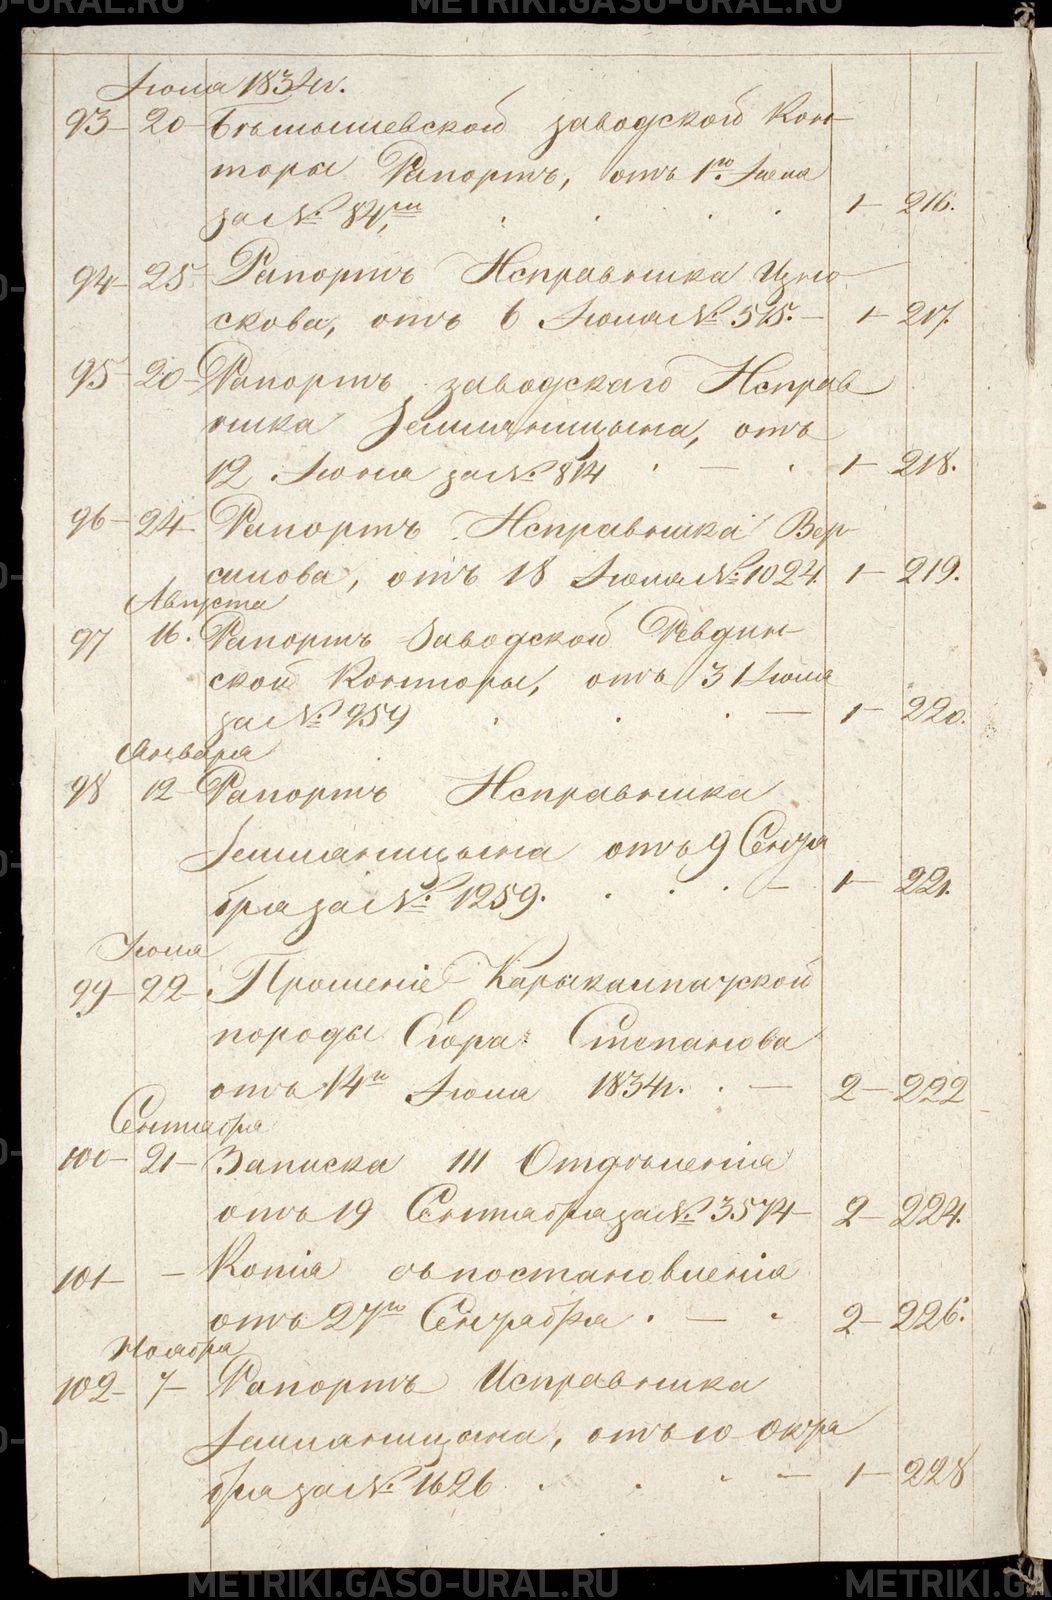 METRIKI.GASO-URAL.RU
Июля 1834г.
93 – 20 – заводской Кон-
торы Рапортъ, отъ 1го Июля
за № 84, 1 – 216.
94 – 25 Рапортъ Исправника Цыно
скова, отъ 6 Июля № 515. – 1 – 217.
95 – 20 – Рапортъ заводскаго Исправ
ника Земляницына, отъ
12 Июля за № 814 . – . 1 – 218.
96 – 24 – Рапортъ Исправника Вер
силова, отъ 18 Июля № 1024. 1 – 219.
Августа
97 16. Рапортъ Заводской Ревдин-
ской Конторы, отъ 31 Июля
за № 959 . . . – 1 – 220.
Января
98 12 – Рапортъ Исправника
Земляницына отъ 9 Сентя
бря за № 1259. . . . – 1 – 221.
Июля
99 – 22 – Прошеніе Каракалпачской
породы Егора Степанова
отъ 14го Июля 1834г. . – 2 – 222
Сентября
100 – 21 – Записка III Отдѣленія
отъ 19 Сентября за № 3574 – 2 – 224.
101 – – Копія съ постановленія
отъ 27го Сентября . – . 2 – 226.
Ноября
102 – 7 – Рапортъ Исправника
Земляницына, отъ 10 Октя
бря за № 1626 . . . – 1 – 228
METRIKI.GASO-URAL.RU